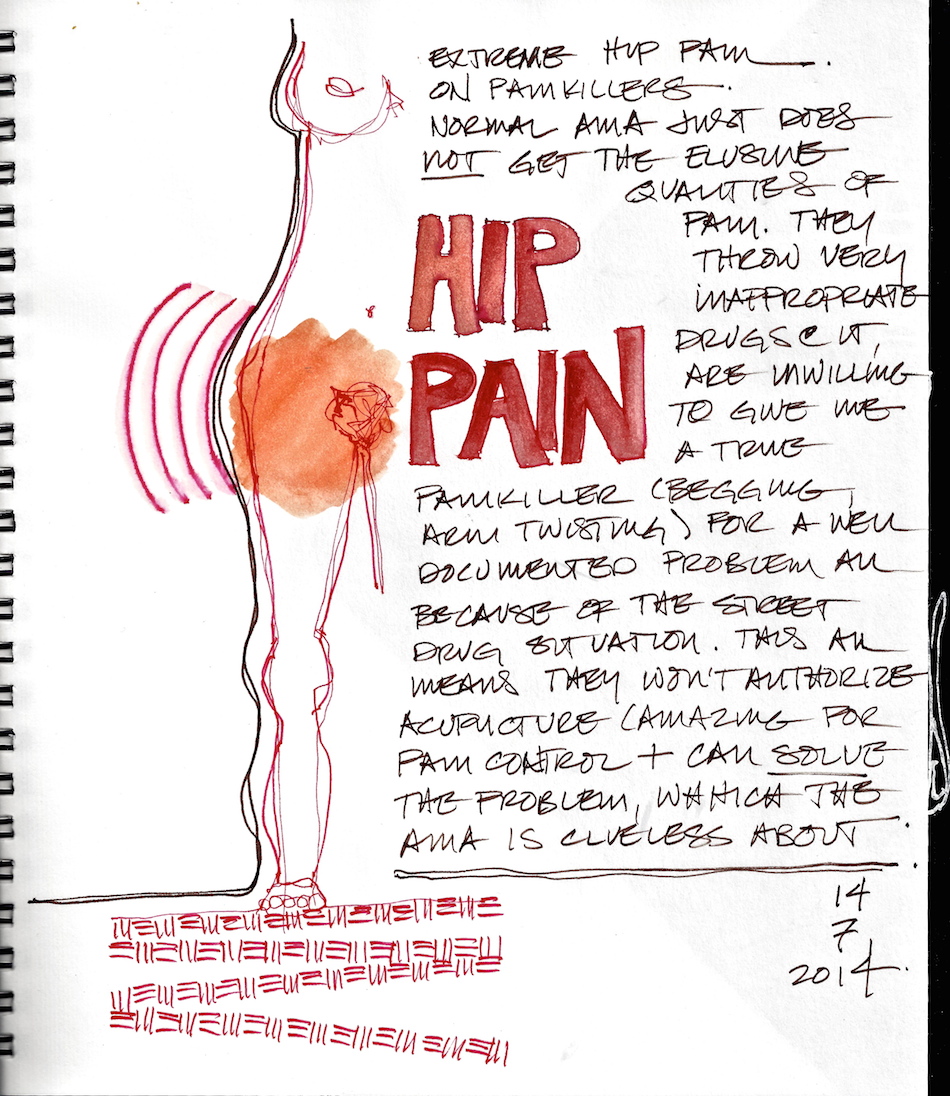 EXTREME HIP PAIN.
ON PAINKILLERS.
NORMAL AMA JUST DOES
NOT GET THE ELUSIVE
QUALITIES OF
PAIN. THEY
THROW VERY
INAPPROPRIATE
DRUGS @ IT,
ARE UNWILLING
TO GIVE ME
A TRUE
HIP
PAIN
PAINKILLER (BEGGING,
ARM TWISTING) FOR A WELL
DOCUMENTED PROBLEM ALL
BECAUSE OF THE STREET
DRUG SITUATION. THIS ALL
MEANS THEY WON'T AUTHORIZE
ACUPUCTURE (AMAZING FOR
PAIN CONTROL + CAN SOLVE
THE PROBLEM, WHHICH THE
AMA IS CLUELESS ABOUT.
14
7
2014.